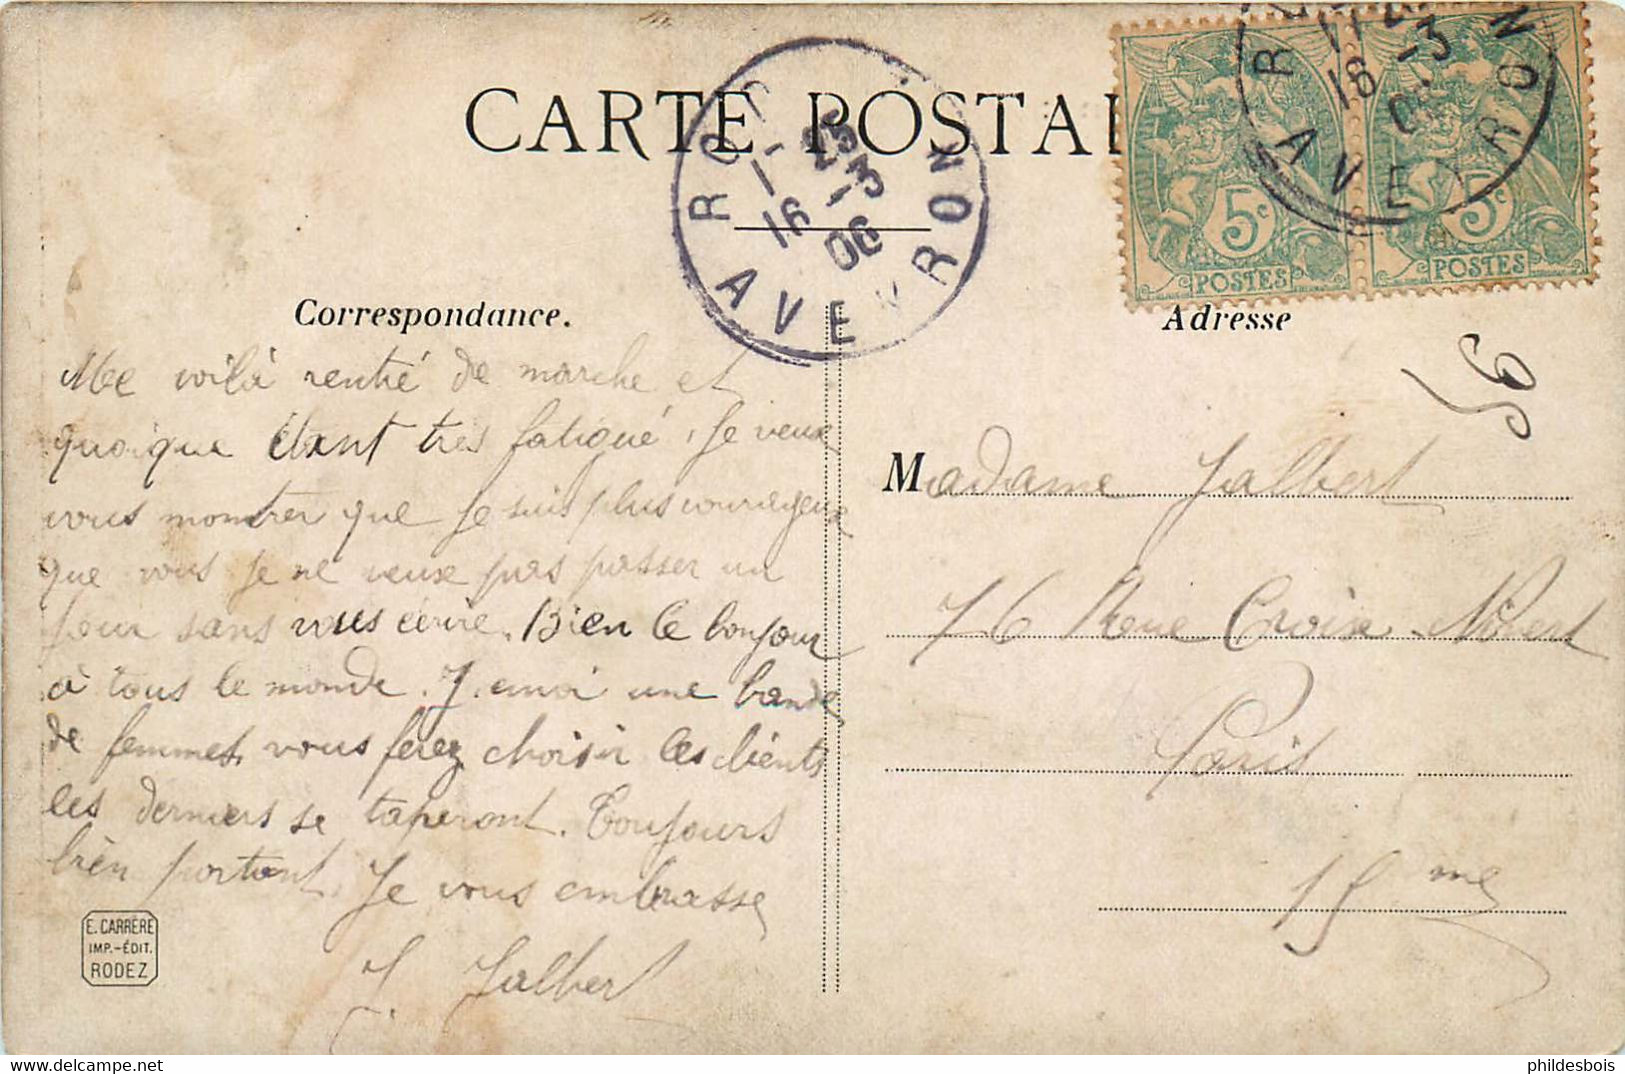 CARTE POSTAL
RODEZ
1-
16
23
-3
06
AVEYRON
5c
POSTES
5c
POSTES
Correspondance.
Adresse
Mee voilà rentré de marche et
quoique étant très fatigué, je veux
vous montrer que je suis plus courageux
que vous je ne veux pas passer un
jour sans vous écrire. Bien le bonjour
à tous le monde. J. envoi une bande
de femmes, vous ferez choisir les clients
les derniers se taperont. Toujours
bien portant. Je vous embrasse
J. Jalbert
Madame Jalbert
76 Rue Croix Nivert
Paris
15me
E. CARRÈRE
IMP.-ÉDIT.
RODEZ
delcampe.net
phildesbois